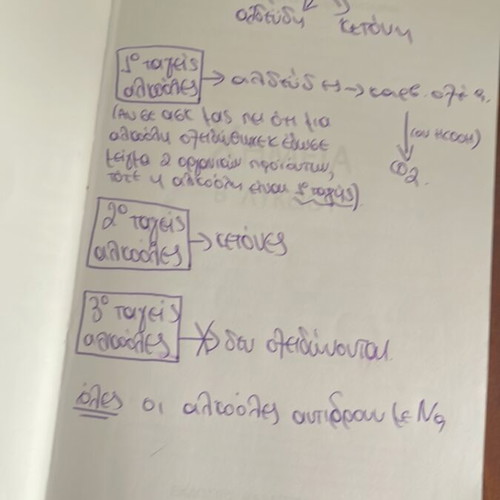 αλδεΰδη κετόνη
1° ταγείς → αλδεΰδες → καρβ. οξέα
αλκοόλες
(Αν σε ασκ μας πει ότι μια (αν HCOOH)
αλκοόλη οξειδώθηκε κ έδωσε
μείγμα 2 οργανικών προϊόντων, CO2
τότε η αλκοόλη είναι 1° ταγής)
2° ταγείς
αλκοόλες → κετόνες
3° ταγείς
αλκοόλες → δεν οξειδώνονται
όλες οι αλκοόλες αντιδρούν με Na